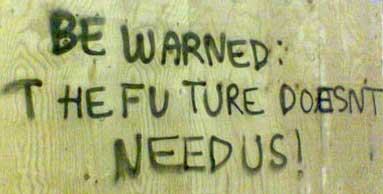 BE WARNED:
THE FUTURE DOESNT
NEED US!